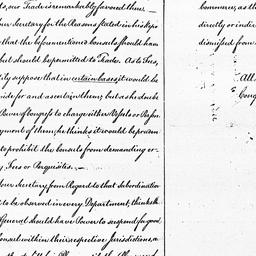 ts, our Trade is remarkably favored there.
our Secretary for the Reasons stated in his Repo
that the beforementioned Consuls should hav
but should be permitted to Trade. As to Fees,
ity suppose that in certain cases it would be
vide for and ascertain them; but as he doubts
Power of Congress to charge either Vessels or Person
yment of them, he thinks it would be proper
to prohibit the Consuls from demanding or
y Fees or Perquisites.
our Secretary from Regard to that Subordination
to be observed in every Department, thinks th
General should have Power to suspend for good
Consul within their respective Jurisdictions, a
Commerce, as th
directly or indire
dismissed from
All
Cong